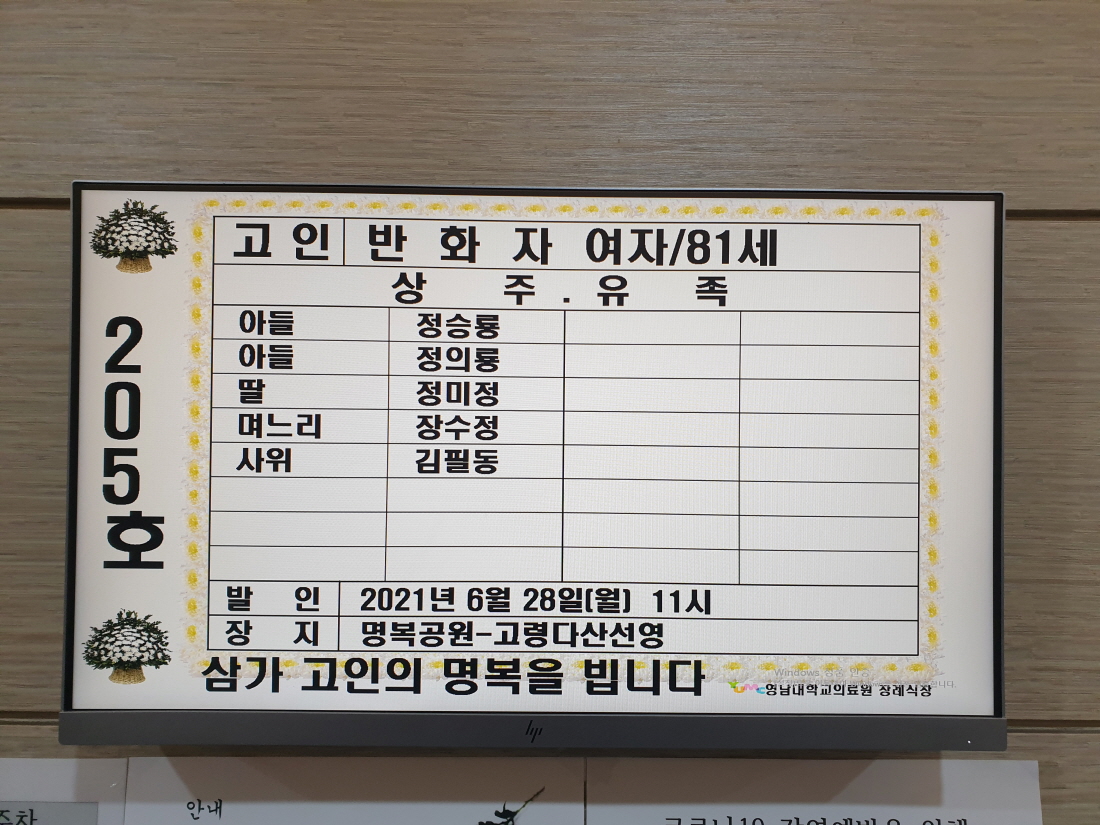 고 인 반 화 자 여자/81세
상 주 . 유 족
아들 정승룡
아들 정의룡
딸 정미정
며느리 장수정
사위 김필동
발 인 2021년 6월 28일(월) 11시
장 지 명복공원-고령다산선영
삼가 고인의 명복을 빕니다
Windows
영남대학교의료원 장례식장
205호
hp
안내